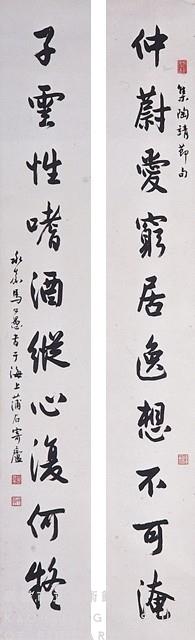 仲蔚愛窮居逸想不可淹
集陶靖節句
子雲性嗜酒縱心復何疑
永嘉馬公愚書于海上蒲石寄廬